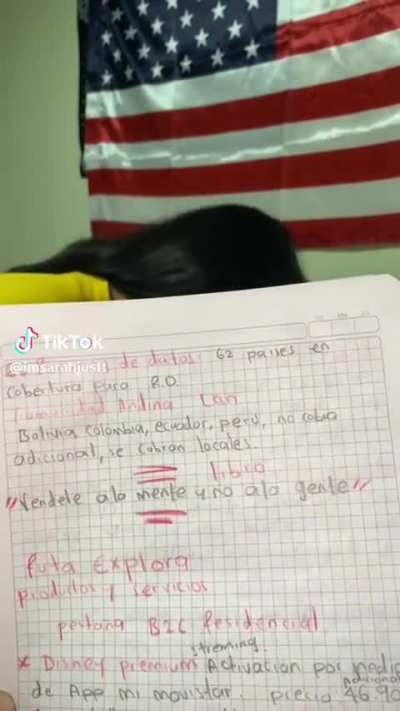 TikTok
@imsarahjustt
de datos: 62 paises en
cobertura para R.D.
Comunidad Andina Can
Bolivia Colombia, ecuador, perú, no cobra
adicional, se cobran locales.
libro
"Vendele a la mente y no a la gente"
ruta Explora
productos y servicios
pestana B2C Residencial
streming.
* Disney premium Activacion por medio
de App mi movistar. precio adicional 46.90